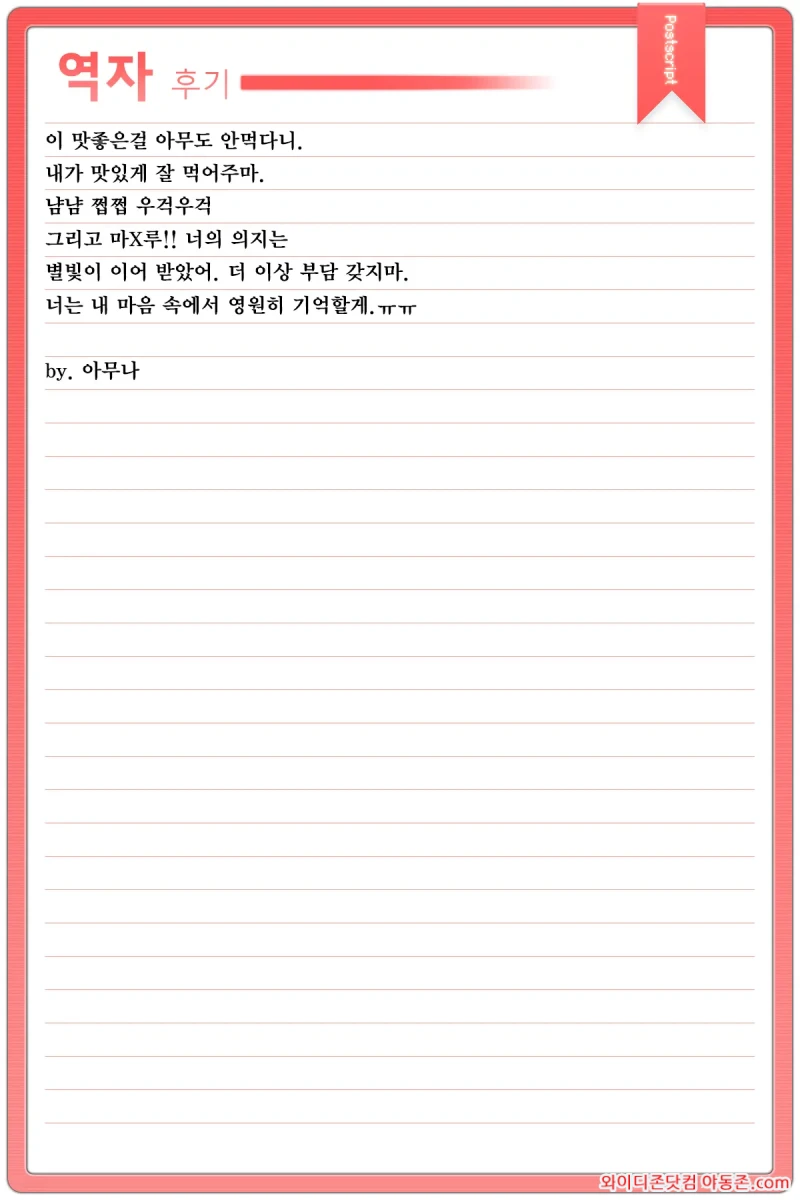 역자 후기
Postscript
이 맛좋은걸 아무도 안먹다니.
내가 맛있게 잘 먹어주마.
냠냠 쩝쩝 우걱우걱
그리고 마X루!! 너의 의지는
별빛이 이어 받았어. 더 이상 부담 갖지마.
너는 내 마음 속에서 영원히 기억할게.ㅠㅠ
by. 아무나
와이디존닷컴 아동존.com